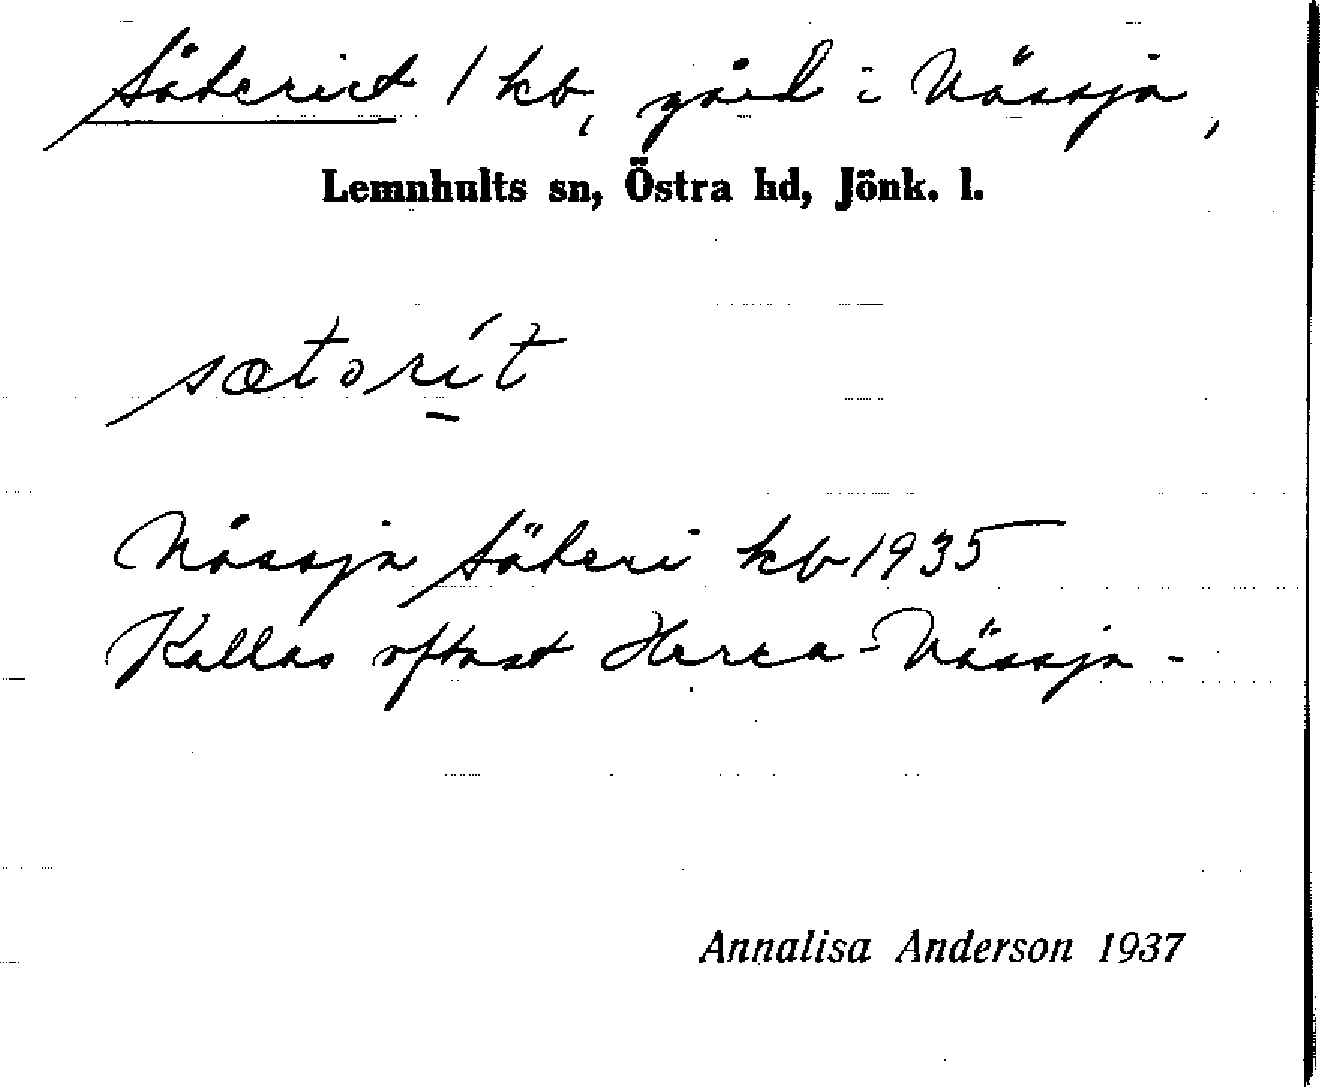 Säteriet 1 kb, gård i Nässja,
Lemnhults sn, Östra hd, Jönk. l.
sætərít
Nässja Säteri kb 1935
Kallas oftast Herra-Nässja-
Annalisa Anderson 1937